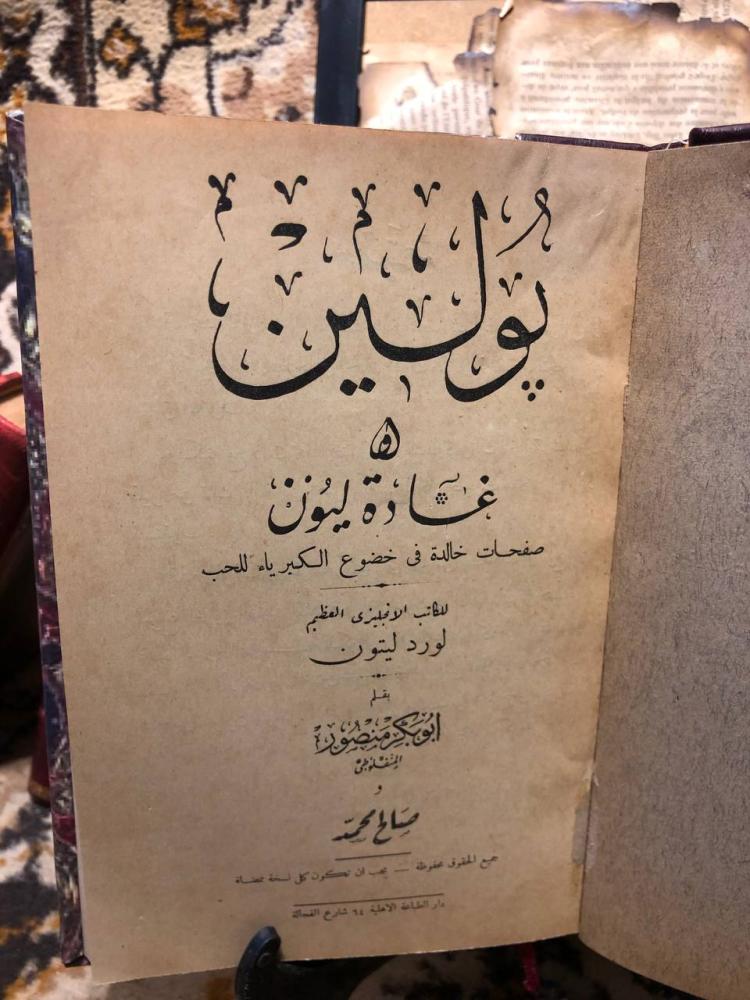 پُولين
أو
غادة ليُون
صفحات خالدة فى خضوع الكبرياء للحب
للكاتب الانجليزى العظيم
لورد ليتون
بقلم
أبُوبَكر مَنصُور
المنفلوطى
و
صَالح محمّد
جميع الحقوق محفوظة — يجب ان تكون كل نسخة ممضاة
دار الطباعة الاهلية ٦٤ شارع الفجالة